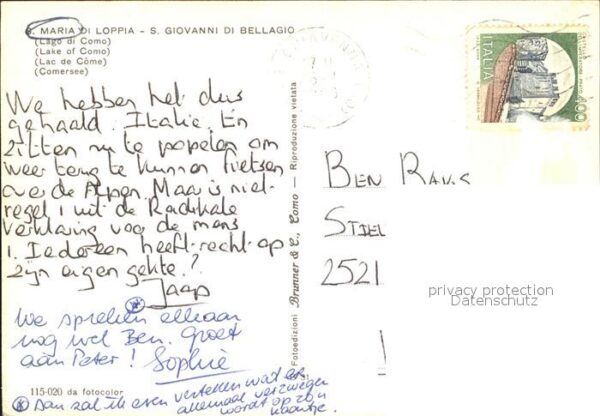 S. MARIA DI LOPPIA - S. GIOVANNI DI BELLAGIO
(Lago di Como)
(Lake of Como)
(Lac de Côme)
(Comersee)
We hebben het dus
gehaald. Italie. En
zitten nu te popelen om
weer terug te kunnen fietsen
over de Alpen. Maar is niet
regel 1 uit de Radikale
Verklaring van de mens
1. Iedereen heeft recht op
zijn eigen gekte.?
Jaap
We spreken elkaar
nog wel Ben. Groet
aan Peter! Sophie
115-020 da fotocolor
Dan zal ik even vertellen wat er
allemaal verzwegen
wordt op zo'n
kaartje.
Fotoedizioni Brunner & C., Como — Riproduzione vietata
ITALIA
400
BEN
2521
privacy protection
Datenschutz